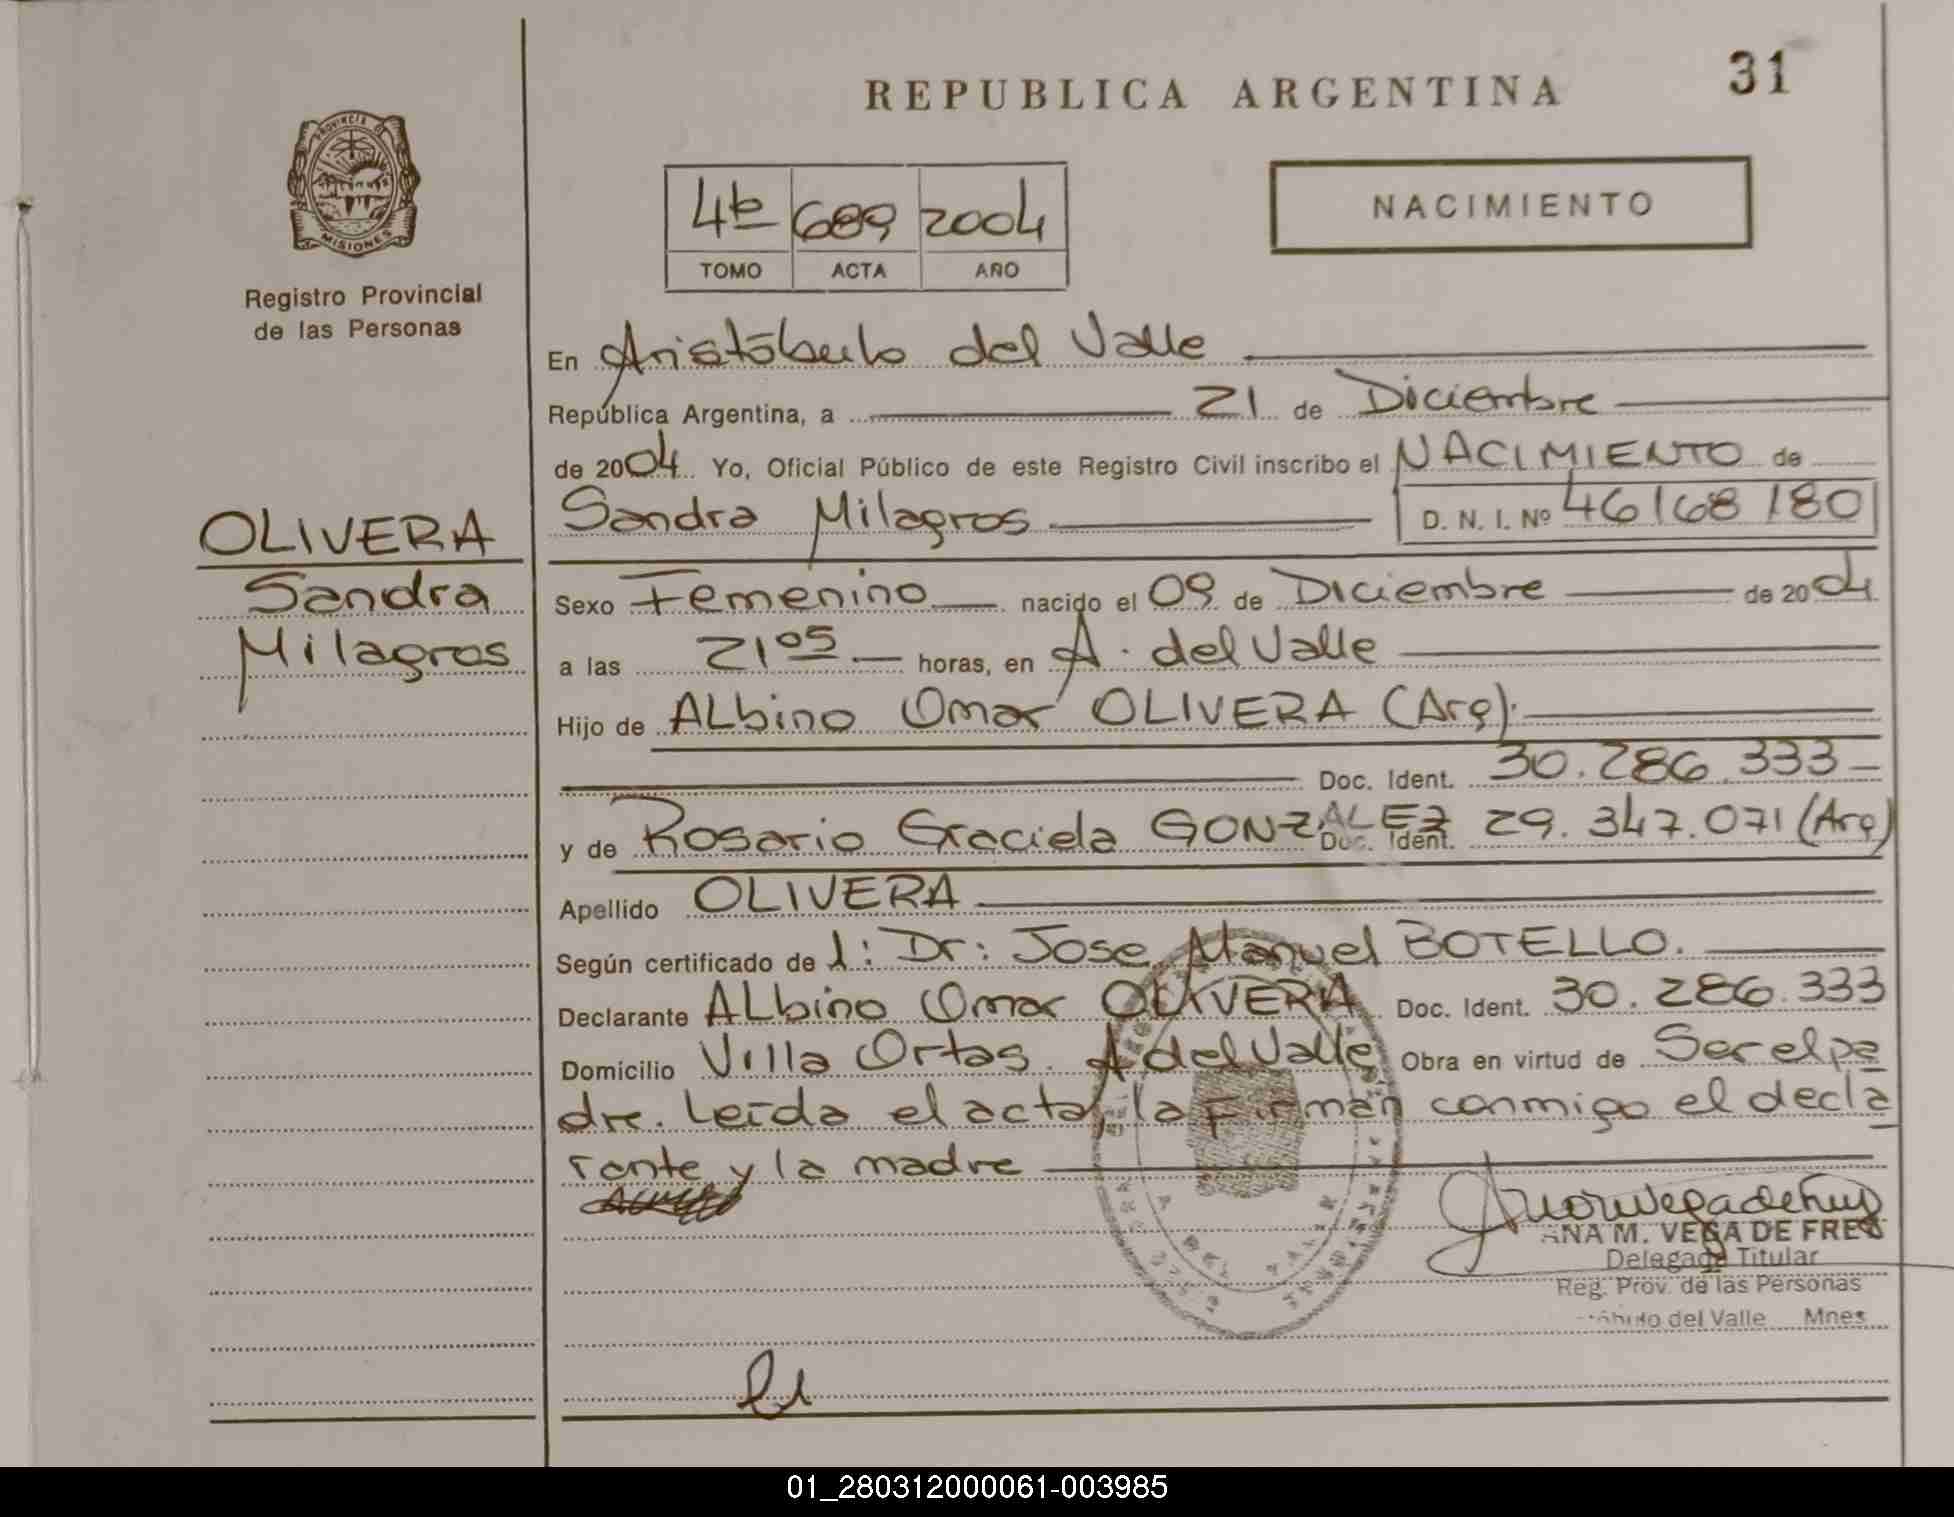 REPUBLICA ARGENTINA
31
PROVINCIA DE
MISIONES
Registro Provincial
de las Personas
4º 689 2004
TOMO ACTA AÑO
NACIMIENTO
En Aristóbulo del Valle
República Argentina, a 21 de Diciembre
de 2004 Yo, Oficial Público de este Registro Civil inscribo el NACIMIENTO de
Sandra Milagros D. N. I. Nº 46168180
OLIVERA
Sandra
Milagros
Sexo Femenino nacido el 09 de Diciembre de 2004
a las 21 05 horas, en A. del Valle
Hijo de ALbino Omar OLIVERA (Arg).
Doc. Ident. 30.286.333
y de Rosario Graciela GONZALEZ Doc. Ident. 29.347.071 (Arg)
Apellido OLIVERA
Según certificado de l: Dr: Jose Manuel BOTELLO.
Declarante ALbino Omar OLIVERA Doc. Ident. 30.286.333
Domicilio Villa Ortas. A del Valle Obra en virtud de Ser el pa
dre. Leída el acta, la firman conmigo el decla
rante y la madre
ANA M. VEGA DE FREY
Delegada Titular
Reg. Prov. de las Personas
del Valle Mnes
01_280312000061-003985